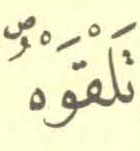 تَلْقَوْهُ ص